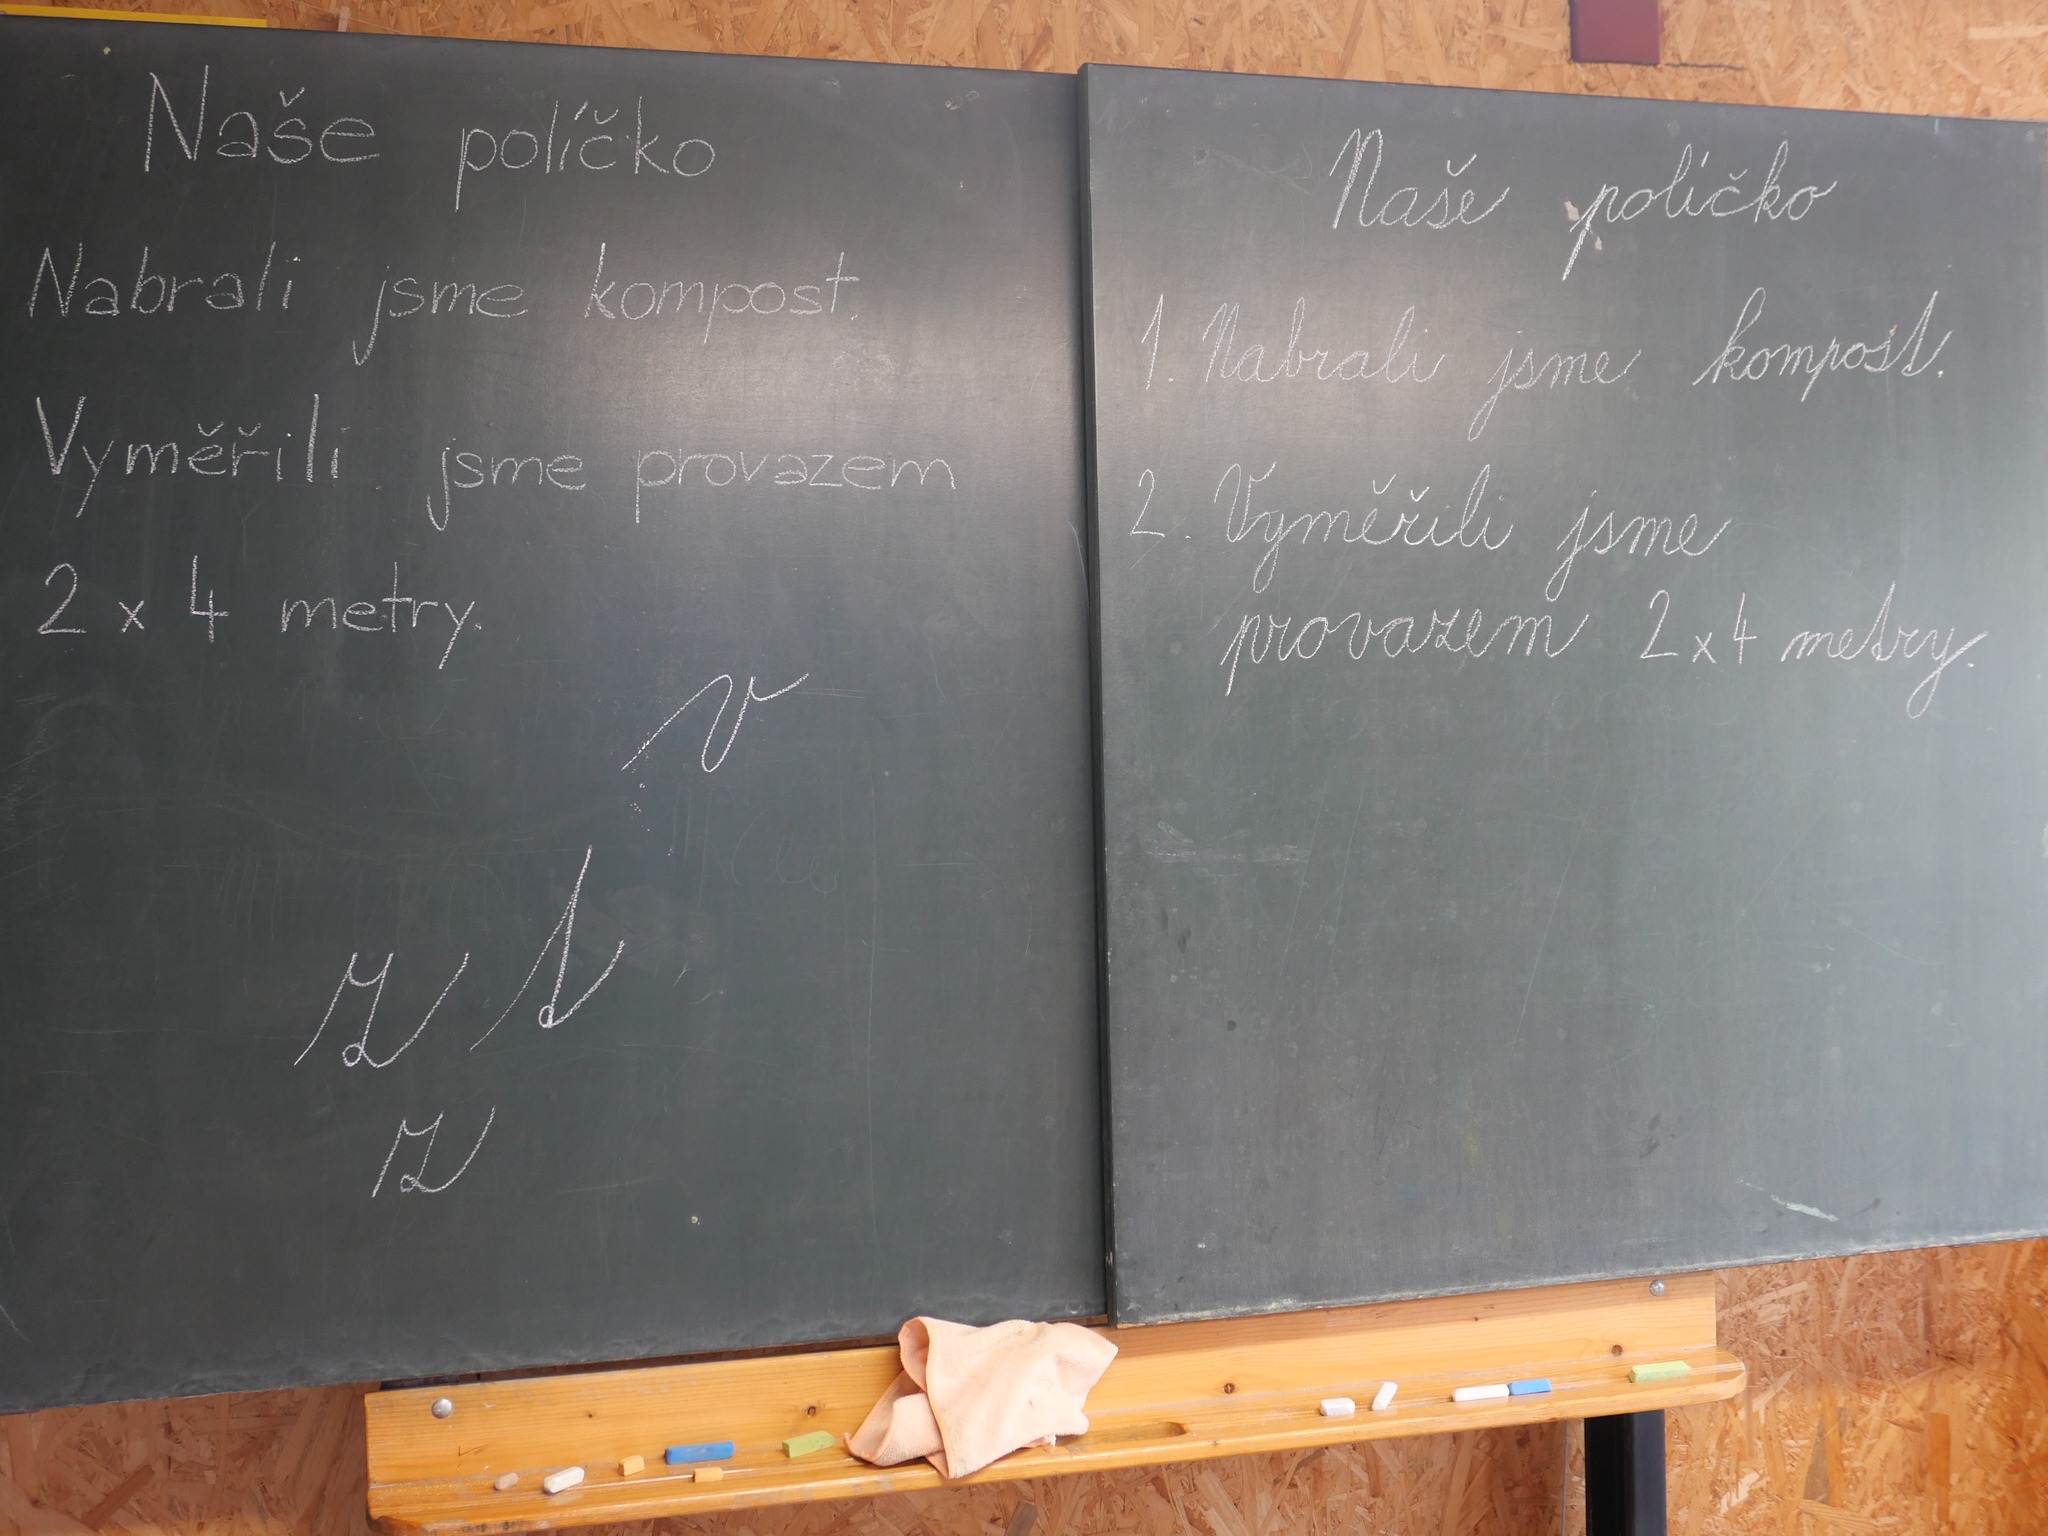 Naše políčko
Nabrali jsme kompost.
Vyměřili jsme provazem
2 x 4 metry.
v
z t
z
Naše políčko
1. Nabrali jsme kompost.
2. Vyměřili jsme
provazem 2 x 4 metry.